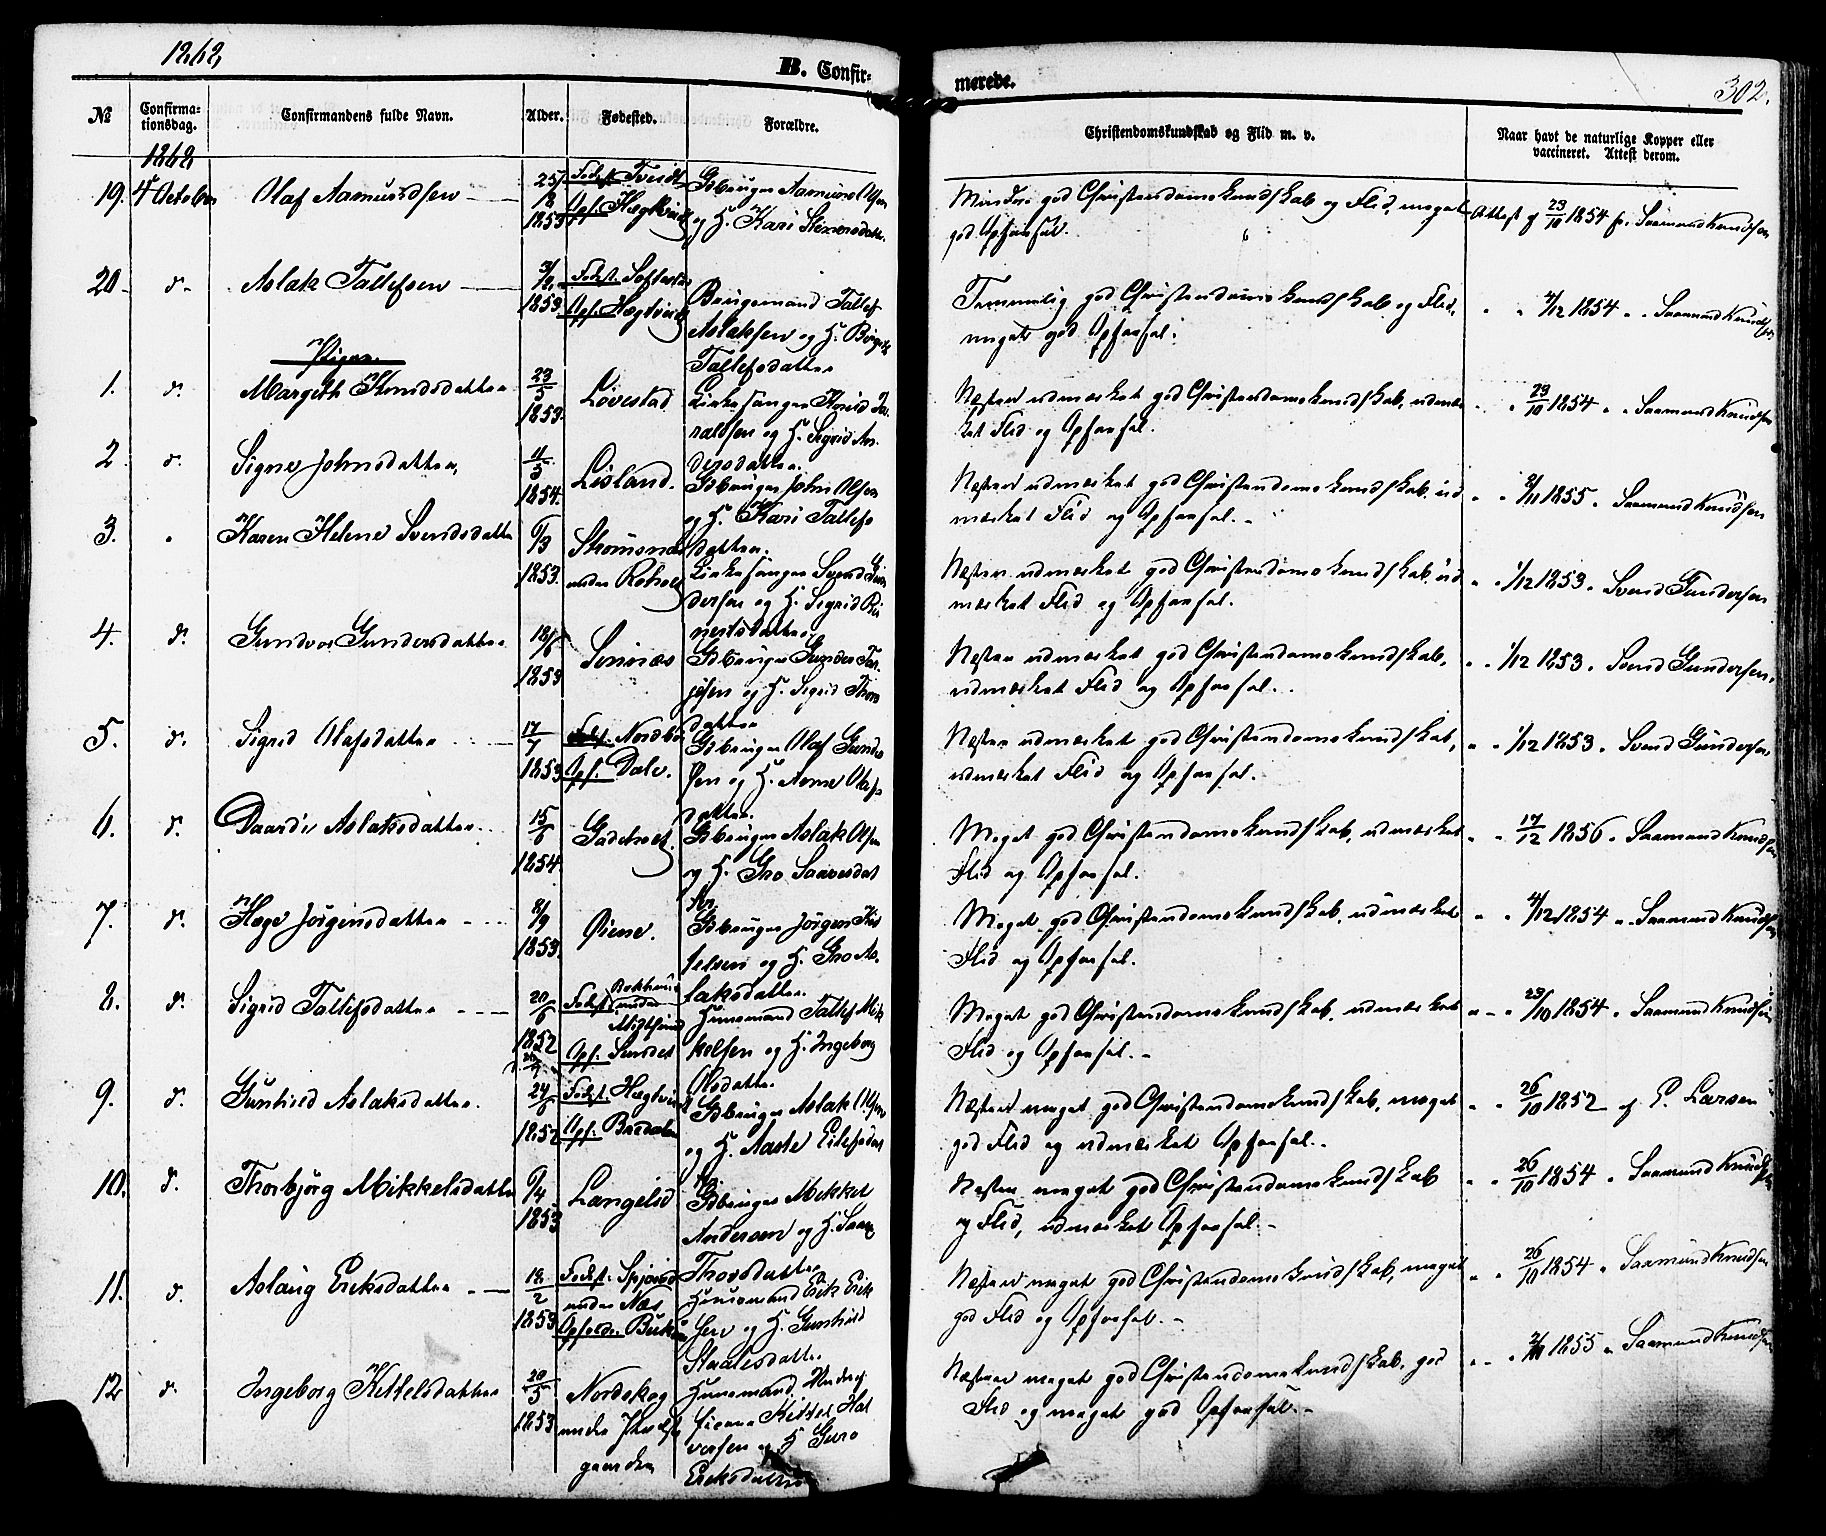 1868
B. Confir-
merede.
302.
№
Confirma-
tionsdag.
Confirmandens fulde Navn.
Alder.
Fødested.
Forældre.
Christendomskundskab og Flid m. v.
Naar havt de naturlige Kopper eller
vaccineret. Attest derom.
1868
19. 4 October Olaf Aasmundsen 25/ 1853 Fødest. Tveidt Gbruger Aasmund Olsen
Opf. Hægtveit og H. Kari Steners datter.
Mindre god Christendomskundskab og Flid, meget
god Opførsel.
Attest af 23/10 1854 fr. Saamund Knudsen
20. d. Aslak Tallefsen 3/ 1853 Fødest.
Opf. Hægtveit Brugsmand Tallef
Aslaksen og H. Børgit
Tallefsdatter
Temmelig god Christendomskundskab og Flid,
meget god Opførsel.
" " 4/12 1854 " " Saamund Knudsen
Piger.
1. d. Margith Knudsdatter 23/5 1853. Løvestad Kirkesanger Knud
raldsen og H. Sigrid An-
dersdatter.
Næsten udmærket god Christendomskundskab, udmær-
ket Flid og Opførsel.
" " 23/10 1854 " " Saamund Knudsen
2. d. Signe Johnsdatter, 11/5 1854. Lisland. Gbruger John Olsen
og H. Kari Tallefs
datter.
Næsten udmærket god Christendomskundskab, ud-
mærket Flid og Opførsel.
" " 2/11 1855 " Saamund Knudsen
3. " Karen Helene Svendsdatter 6/3 1853. Strømsnæs
under Roholt Kirkesanger Svend Gun-
dersen og H. Sigrid Rei
nertsdatter
Næsten udmærket god Christendomskundskab, ud-
mærket Flid og Opførsel.
" " 1/12 1853 " Svend Gundersen
4. d. Gunvor Gundersdatter 18/6 1853 Gbruger Gunder Tar-
jesen og H. Sigrid Thors
datter
Næsten udmærket god Christendomskundskab,
udmærket Flid og Opførsel.
" " 1/12 1853 " Svend Gundersen.
5. d. Sigrid Olafsdatter 17/7 1853 Fødest. Nordbø
Opf. Dale. Gbruger Olaf Gunder
sen og H. Anne Olafs
datter.
Næsten udmærket god Christendomskundskab,
udmærket Flid og Opførsel.
" " 1/12 1853 " Svend Gundersen
6. d. Daardi Aslaksdatter. 15/6 1854. Gbruger Aslak Olsen
og H. Gro Saavesdat
ter.
Meget god Christendomskundskab, udmærket
Flid og Opførsel.
" " 17/12 1856 " Saamund Knudsen
7. d. Hæge Jørgensdatter 8/9 1853. Øiene. Gbruger Jørgen Kit
telsen og H. Gro As-
laksdatter.
Meget god Christendomskundskab, udmærket
Flid og Opførsel.
" " 4/12 1854 " Saamund Knudsen
8. d. Sigrid Tallefsdatter 20/6 1852 Fødest. Bakhus
under
Opf. Sundet Husmand Tallef Mik
kelsen og H. Ingeborg
Olsdatter.
Meget god Christendomskundskab, udmærket
Flid og Opførsel.
" " 23/10 1854 " Saamund Knudsen
9. d. Gunhild Aslaksdatter. 24/6 1852 Fødest. Hægtveit
Opf. Bakdalen Gbruger Aslak Olsen
og H. Aaste Eilefsdat
ter.
Næsten meget god Christendomskundskab, meget
god Flid og udmærket Opførsel.
" " 26/10 1852 af E. Larsen
10. d. Thorbjørg Mikkelsdatter 6/4 1853 Langelid Gbruger Mikkel
Andersen og H. Saave
Thorsdatter
Næsten meget god Christendomskundskab
og Flid, udmærket Opførsel.
" " 26/10 1854 " Saamund Knudsen
11. d. Aslaug Eriksdatter 12/2 1853 Fødest. Spjosod
under Næs
Opfødt. Husmand Erik Erik
sen og H. Gunhild
Staalesdatter.
Næsten meget god Christendomskundskab, meget
god Flid og Opførsel.
" " 26/10 1854 " Saamund Knudsen
12 d. Ingeborg Kittelsdatter 20/5 1853 Nordskog
under
gaarden Husmand, Under
Kittel Hal
vorsen og H. Guro
Eriksdatter
Næsten meget god Christendomskundskab, god
Flid og meget god Opførsel.
" " 2/11 1855 " Saamund Knudsen